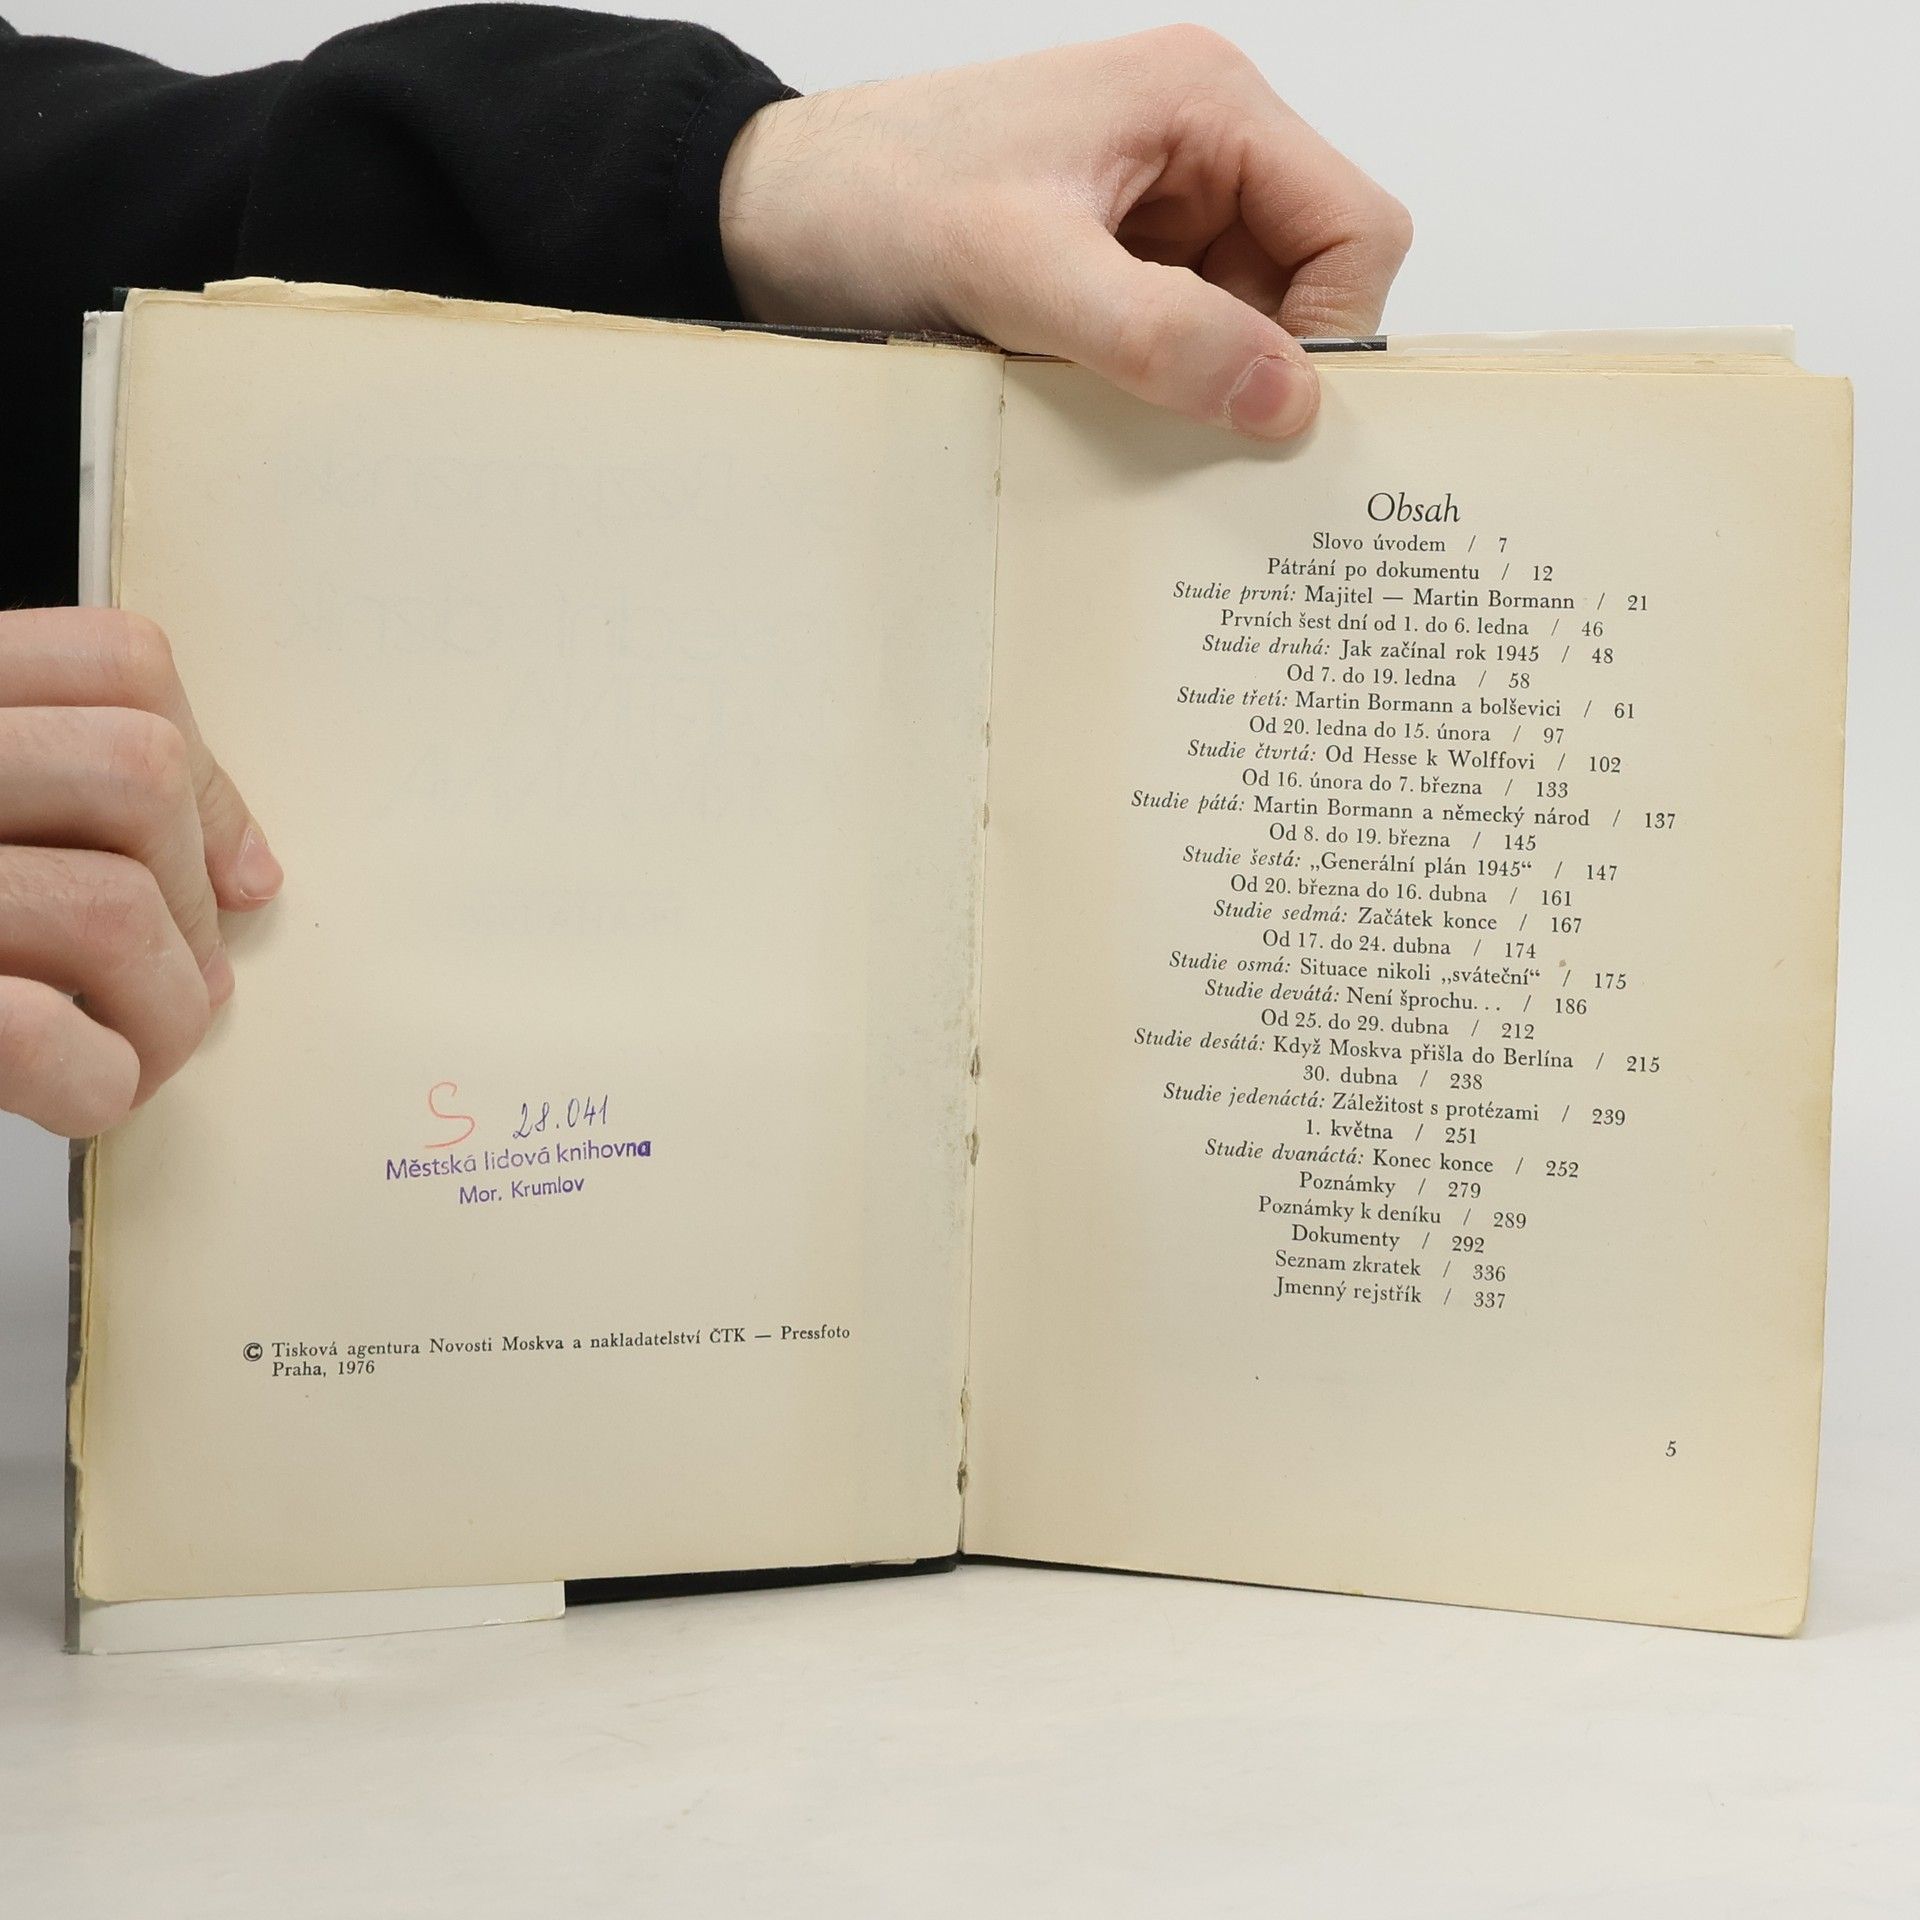 S 28.041
Městská lidová knihovna
Mor. Krumlov
© Tisková agentura Novosti Moskva a nakladatelství ČTK — Pressfoto
Praha, 1976
Obsah
Slovo úvodem / 7
Pátrání po dokumentu / 12
Studie první: Majitel — Martin Bormann / 21
Prvních šest dní od 1. do 6. ledna / 46
Studie druhá: Jak začínal rok 1945 / 48
Od 7. do 19. ledna / 58
Studie třetí: Martin Bormann a bolševici / 61
Od 20. ledna do 15. února / 97
Studie čtvrtá: Od Hesse k Wolffovi / 102
Od 16. února do 7. března / 133
Studie pátá: Martin Bormann a německý národ / 137
Od 8. do 19. března / 145
Studie šestá: „Generální plán 1945“ / 147
Od 20. března do 16. dubna / 161
Studie sedmá: Začátek konce / 167
Od 17. do 24. dubna / 174
Studie osmá: Situace nikoli „sváteční“ / 175
Studie devátá: Není šprochu... / 186
Od 25. do 29. dubna / 212
Studie desátá: Když Moskva přišla do Berlína / 215
30. dubna / 238
Studie jedenáctá: Záležitost s protézami / 239
1. května / 251
Studie dvanáctá: Konec konce / 252
Poznámky / 279
Poznámky k deníku / 289
Dokumenty / 292
Seznam zkratek / 336
Jmenný rejstřík / 337
5